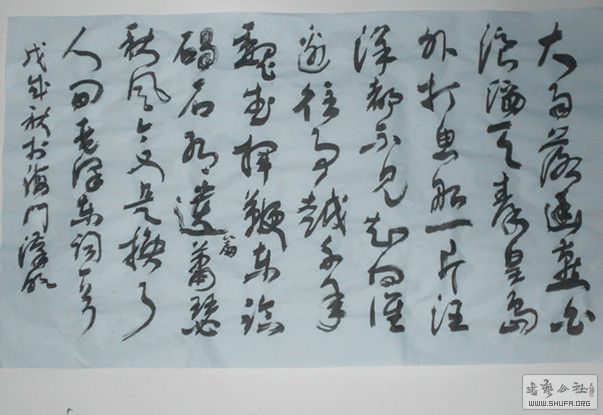 大雨落幽燕白
浪滔天秦皇岛
外打鱼船一片汪
洋都不见知向谁
边往事越千年
魏武挥鞭东临
碣石有遗篇萧瑟
秋风今又是换了
人间毛泽东词一首
戊戌秋于海门
书艺公社
WWW.SHUFA.ORG